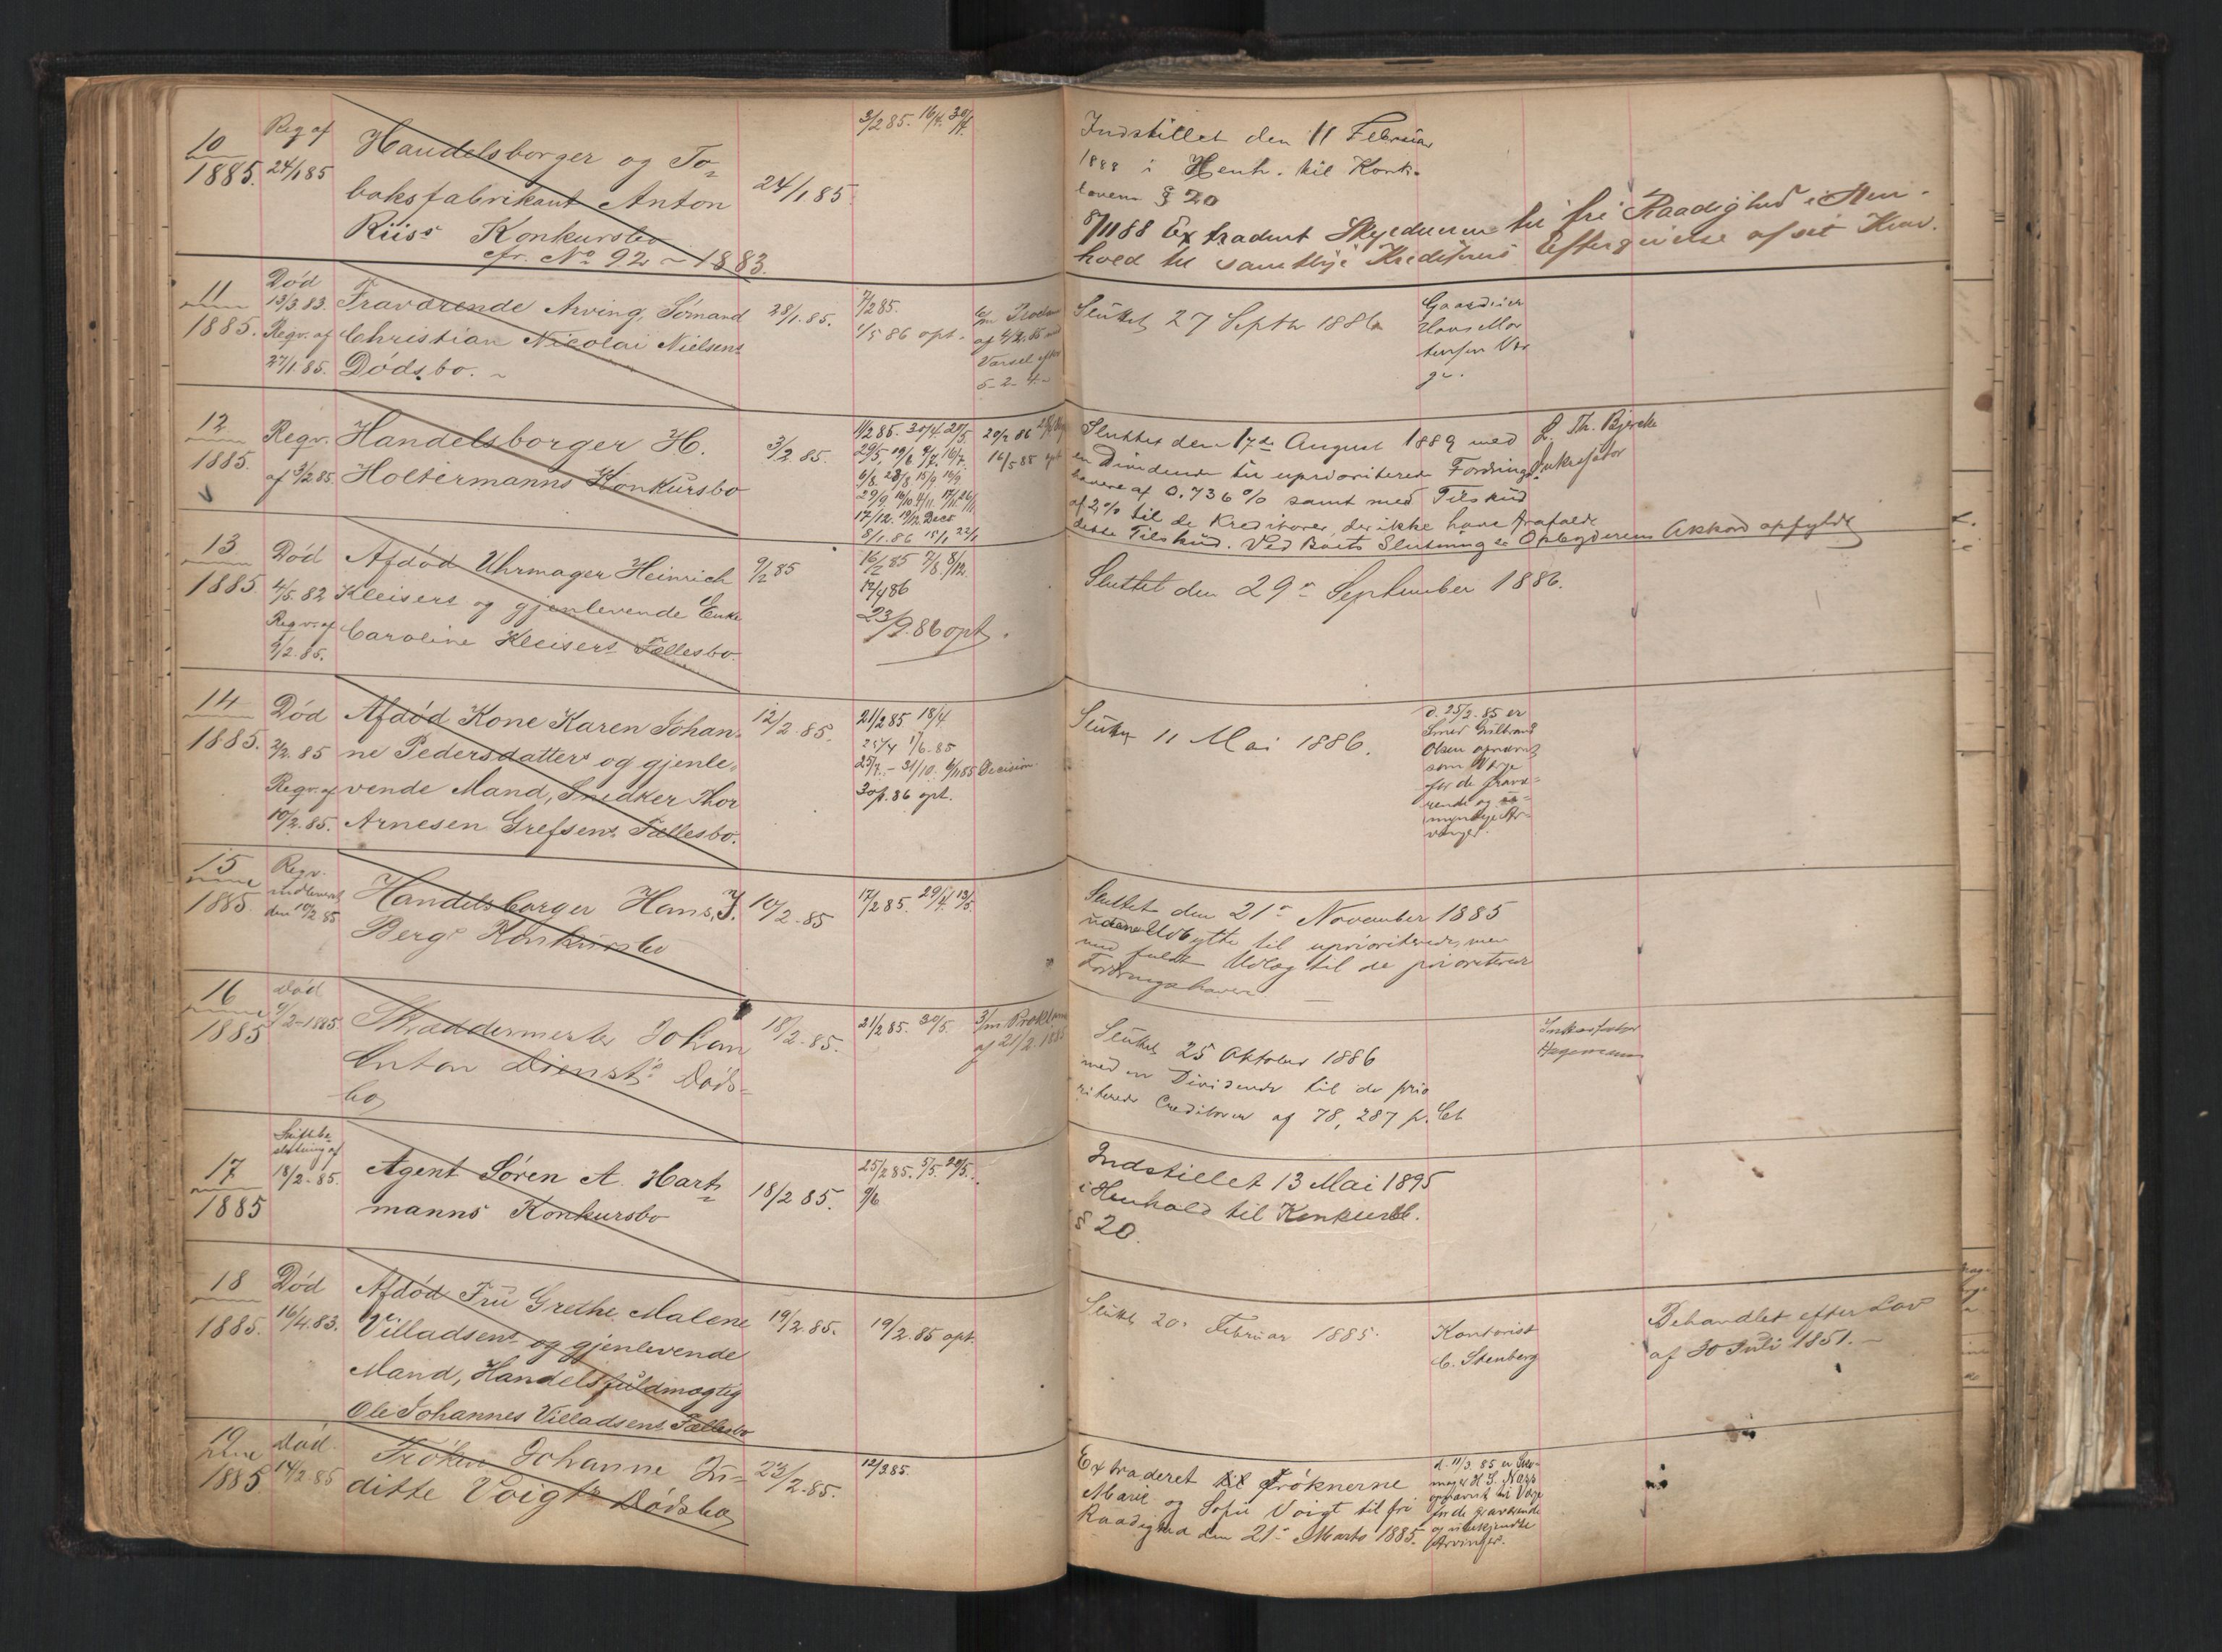 10
1885.
Reg af
24/1 85
Handelsborger og To-
baksfabrikant Anton
Riis's Konkursbo
cfr. No 92 - 1883.
24/1 85
3/2 85. 16/4. 30/4.
Indstillet den 11 Februar
1888 i Henh. til Konk.
lovens § 20
8/11 88 Extraderet Skyldneren til fri Raadighed i Hen-
hold til samtlige Kreditorers Eftergivelse af sit Krav.
11
1885.
Død
13/3 83.
Regv. af
27/1 85.
Fraværende Arving, Sømand
Christian Nicolai Nielsens
Dødsbo. -
28/1. 85.
7/2 85.
1/5 86 opt.
6/m Proclama
af 4/2. 85 med
Varsel efter
5-2-4-
Sluttet 27 Septbr 1886
Gaardeier
Hans Mor
tensen Vær
ge.
12
1885.
Regv.
af 3/2 85.
Handelsborger H.
Holtermanns Konkursbo
3/2. 85.
11/2 85. 30/4. 20/5.
17/12. 19/12. Decs
8/1. 86 15/1 22/1
20/2 86
16/5 85 opt
Sluttet den 17de August 1889 med
en Dividende til uprioriterede Fordrings-
havere af 0.736 % samt med Tilskud
af 2 % til de Kreditorer, der ikke have frafaldt
dette Tilskud. Ved Boets Slutning er Opbyderens Akkord opfyldt
L. Th. Bjercke
Inkassator
13
1885.
Død
4/5. 82
Regv. af
9/2. 85.
Afdød Uhrmager Heinrich
Kleisers og gjenlevende Enke
Caroline Kleisers Fællesbo.
9/2 85
16/2 85 7/8. 8/12.
12/4 86
23/9. 86 opt.
Sluttet den 29de September 1886.
14
1885.
Død
2/2. 85
Regv. af
10/2. 85.
Afdød Kone Karen Johan-
ne Pedersdatters og gjenle-
vende Mand, Snedker Thor
Arnesen Grefsens Fællesbo.
12/2. 85.
21/2 85. 18/4
25/4 1/6. 85
25/7. - 31/10. 6/11 85 Decision
30/. 86 opt.
Sluttet 11 Mai 1886.
d. 25/2. 85 er
Smed Gulbrand
Olsen opnævnt
som Værge
for de fravæ-
rende og u-
myndige Ar-
vinger.
15
1885
Regv.
indleveret
den 10/2 85
Handelsborger Hans J.
Bergs Konkursbo
10/2. 85
17/2 85. 29/4. 13/5.
Sluttet den 21de November 1885
uden Udbytte til uprioriterede, men
med fuldt Udlæg til de prioriterede
Fordringshavere
16
1885
Død
9/2-1885.
Skræddermester Johan
Anton Dienst's Døds-
bo,
18/2. 85.
21/2 85. 30/5.
3/m Proklama
af 21/2. 1885
Sluttet 25 Oktober 1886
med en Dividende til de prio
riterede Creditorer af 78,287 p. Ct
Inkassator
Hagemann
17
1885
Skiftebe-
slutning af
18/2. 85.
Agent Søren A. Hart-
manns Konkursbo
18/2 85.
25/2 85. 5/5. 20/5.
9/6
Indstillet 13 Mai 1895
i Henhold til Konkursl.
§ 20.
18
1885.
Død
16/4. 83.
Afdød Fru Grethe Malene
Villadsens og gjenlevende
Mand, Handelsfuldmægtig
Ole Johannes Villadsens Fællesbo
19/2. 85.
19/2. 85 opt.
Sluttet 20. Februar 1885.
Kontorist
C. Stenberg
Behandlet efter Lov
af 30 Juli 1851. -
19
1885
Død.
14/2. 85
Frøken Johanne Ju-
ditte Voigts Dødsbo,
23/2. 85.
12/3 85.
Extraderet til Frøknerne
Marie og Sofie Voigt til fri
Raadighed den 21de Marts 1885.
d. 11/3. 85 er
opnævnt til Værge
for de fraværende
og ubekjendte
Arvinger.